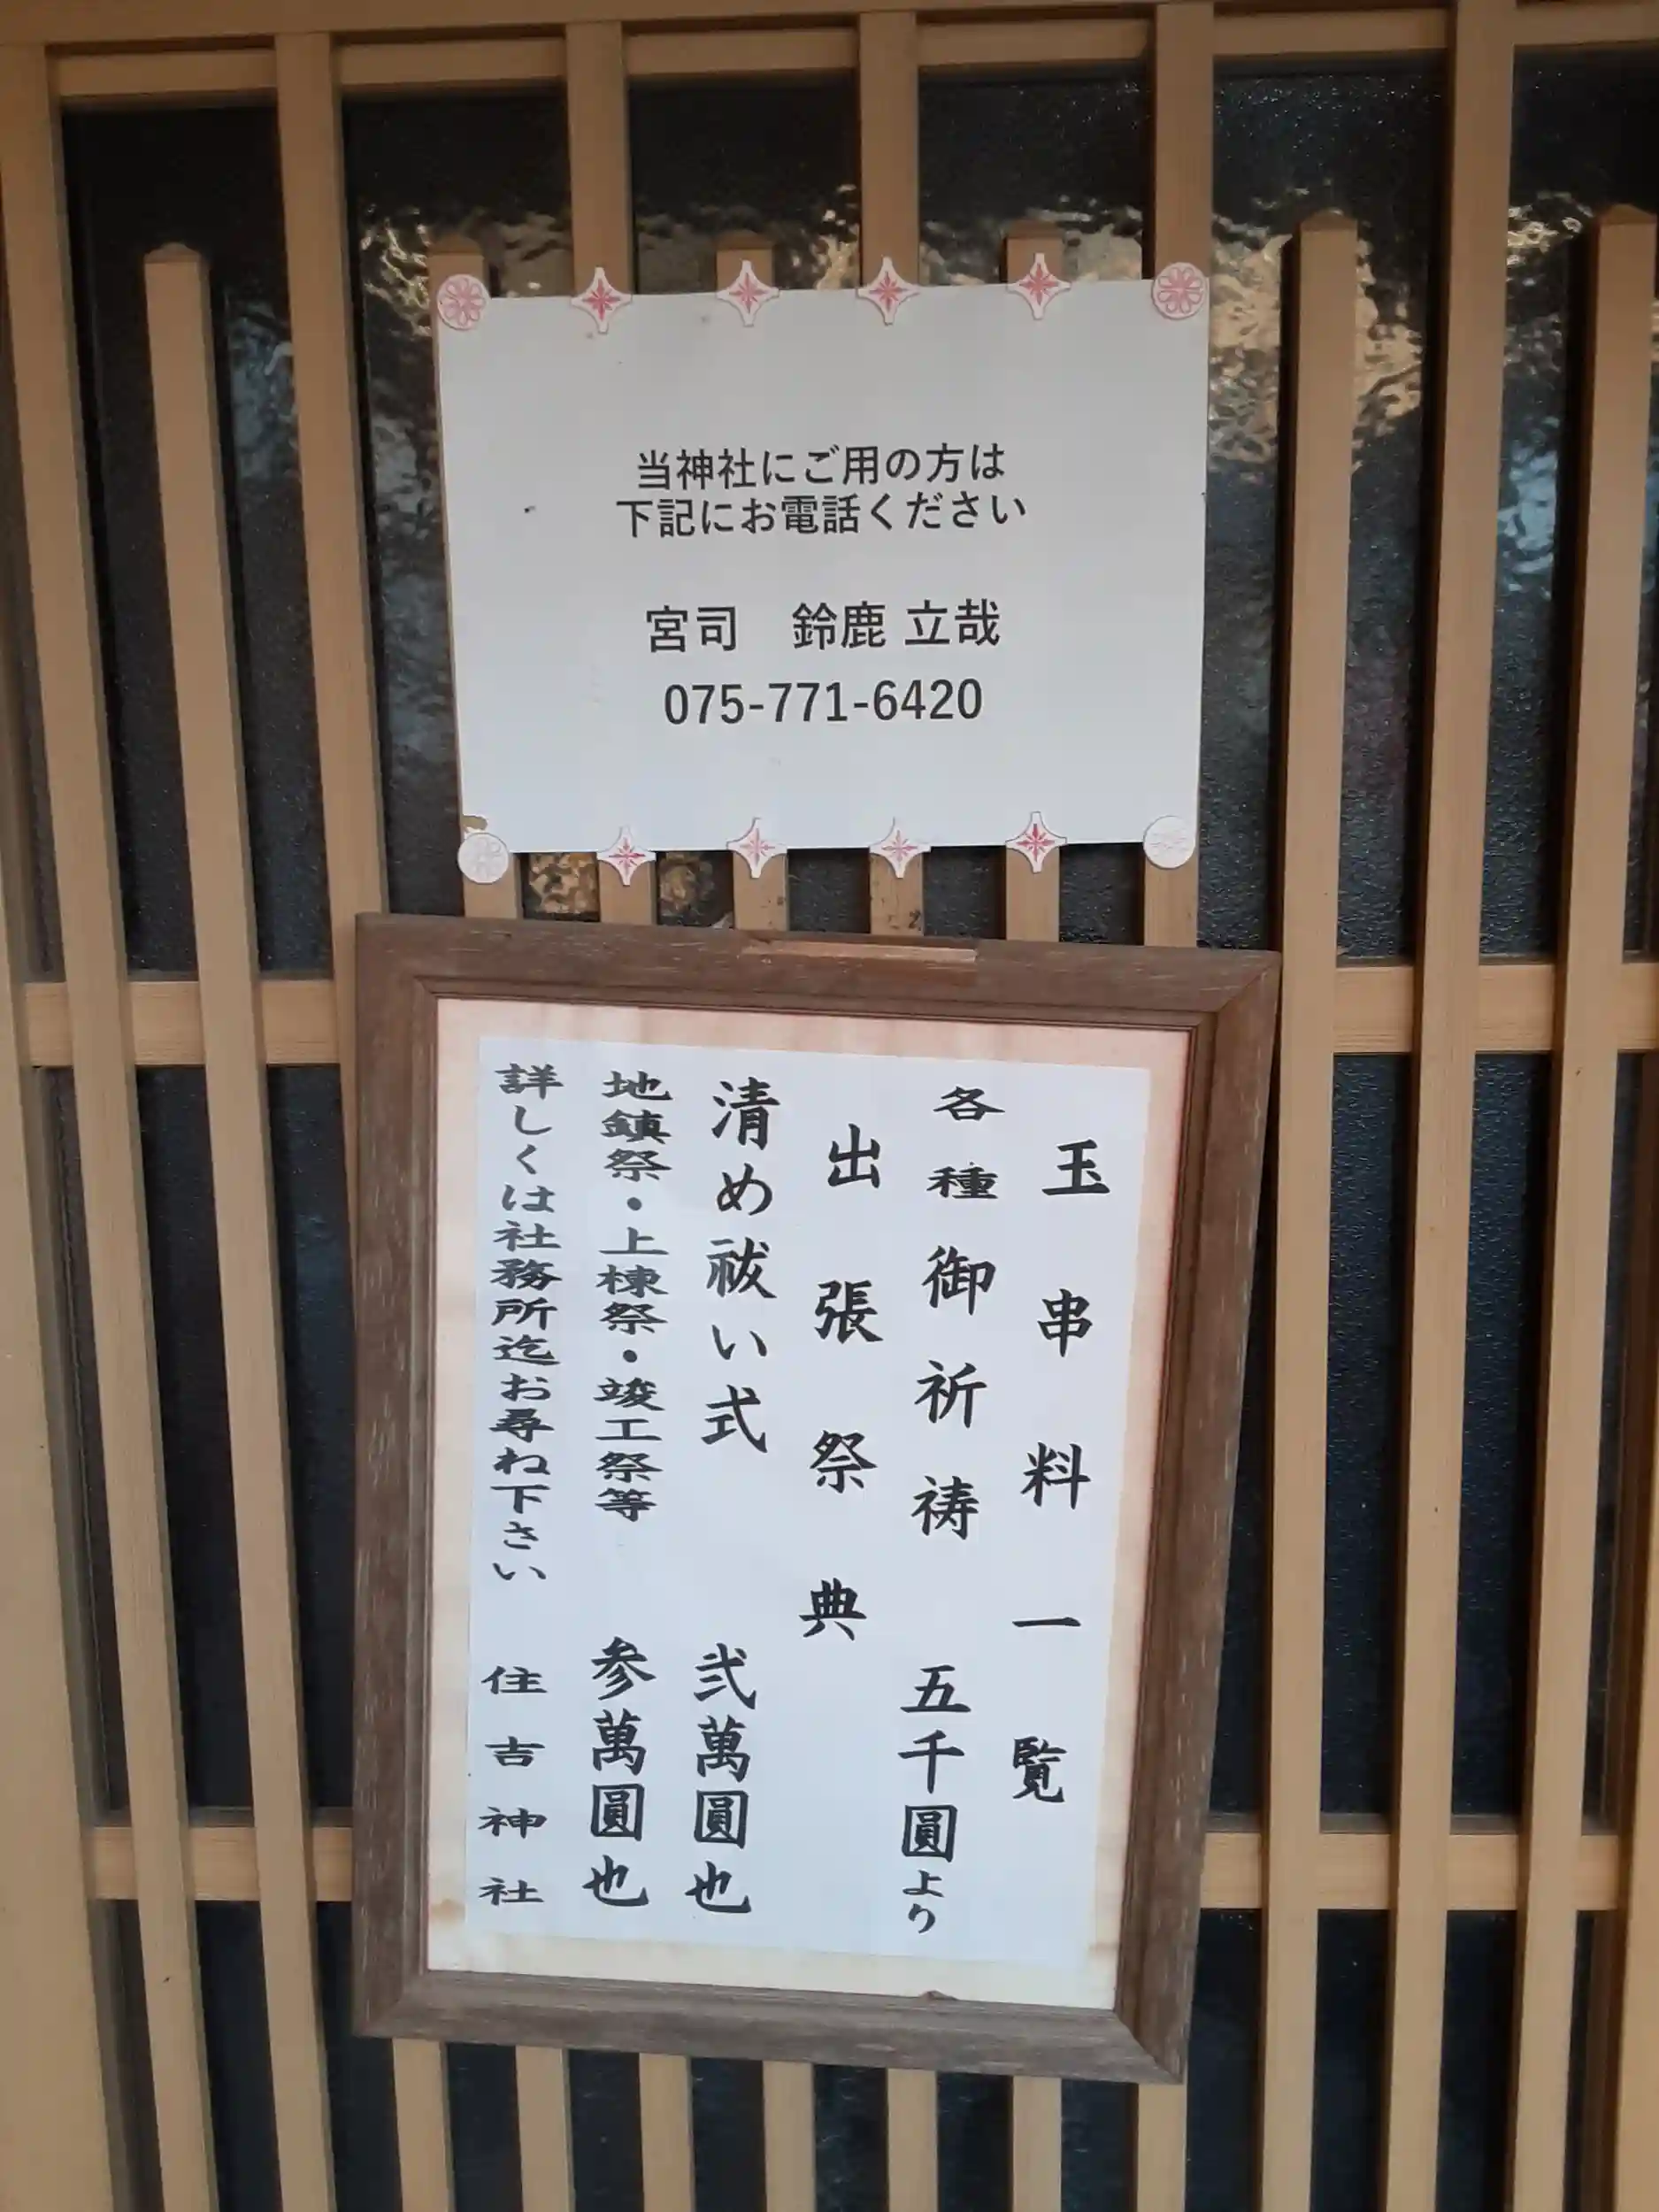 当神社にご用の方は
下記にお電話ください
宮司　鈴鹿 立哉
075-771-6420
玉串料一覧
各種御祈祷　五千圓より
出張祭典
清め祓い式　弐萬圓也
地鎮祭・上棟祭・竣工祭等　参萬圓也
詳しくは社務所迄お尋ね下さい　住吉神社